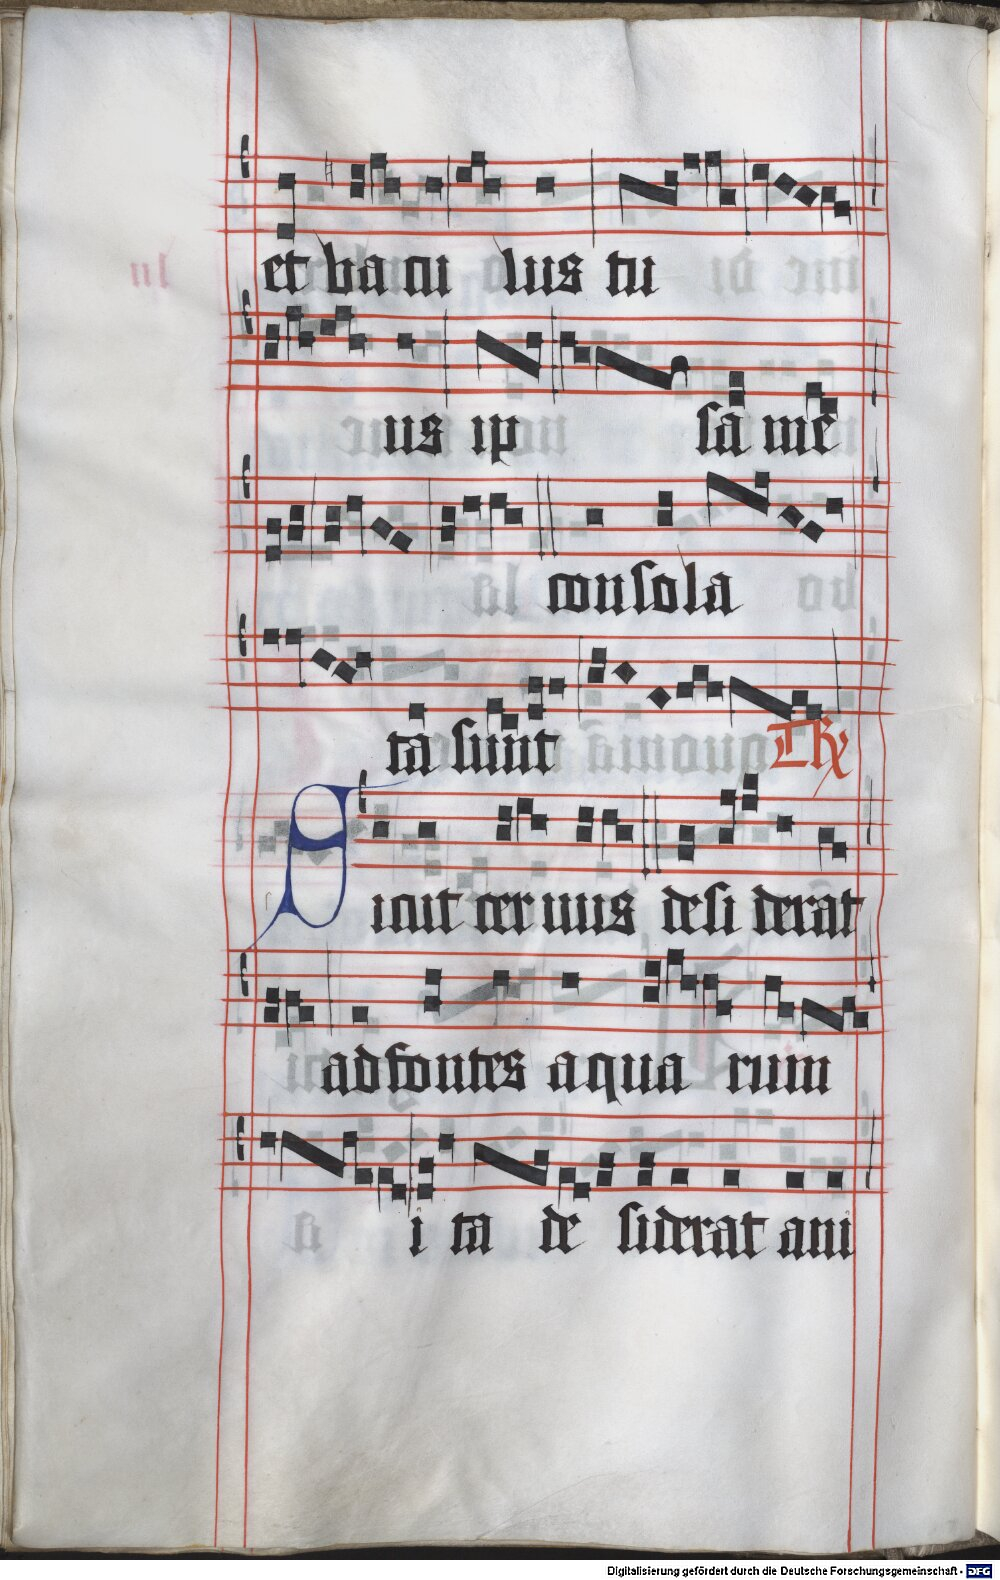 et bacu lus tu
us ip sa me
consola
ta sunt Tr
Sicut ceruus desi derat
ad fontes aqua rum
i ta de siderat ani
Digitalisierung gefördert durch die Deutsche Forschungsgemeinschaft - DFG